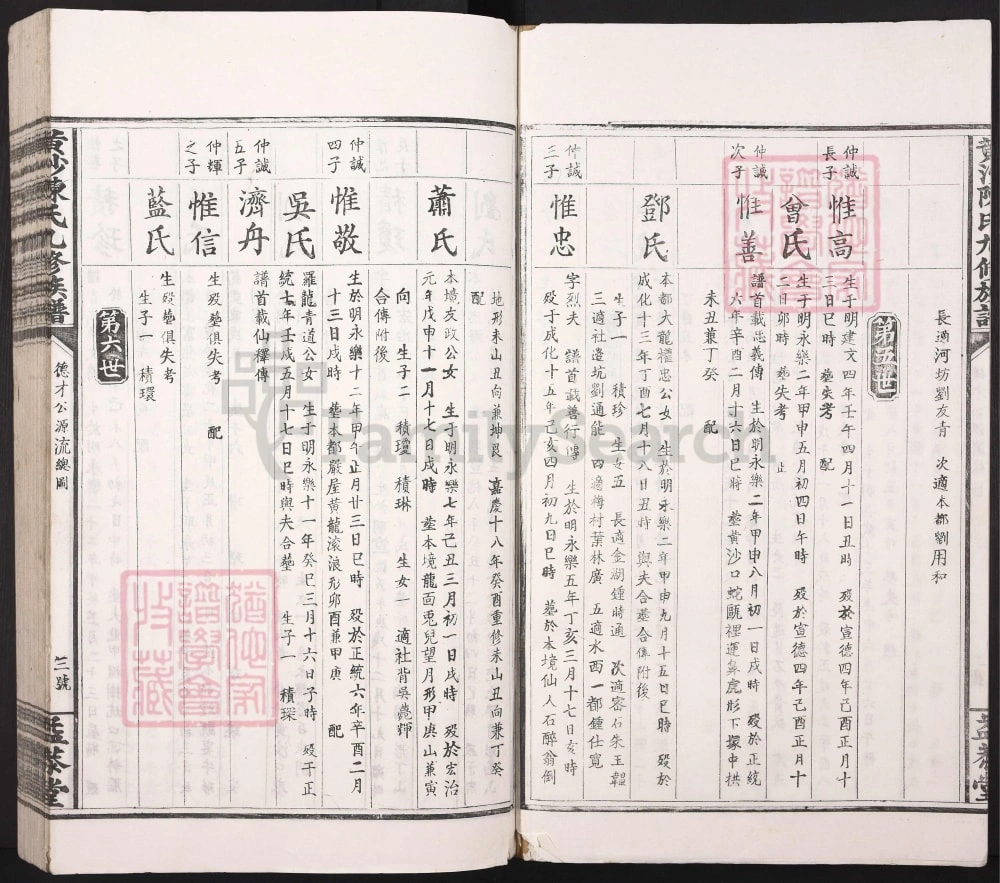 長適河坊劉友青 次適本都劉用和
第五世
仲誠長子
惟高
生于明建文四年壬午四月十一日丑時 歿於宣德四年己酉正月十三日巳時 墓失考 配
曾氏
生于明永樂二年甲申五月初四日午時 歿於宣德四年己酉正月十二日卯時 墓失考 止
仲誠次子
惟善
譜首載忠義傳 生於明永樂二年甲申八月初一日戌時 歿於正統六年辛酉二月十六日巳時 墓黃沙口蛇
形下 中拱未丑兼丁癸 配
鄧氏
本都大龍權忠公女 生於明永樂二年甲申九月十五日巳時 歿於成化十三年丁酉七月十八日丑時 與夫合墓合傳附後
生子一 積珍 生女五 長適金湖鍾時通 次適密石朱玉韞
三適社邊坑劉通能 四適梅村葉林廣 五適水西一都鍾仕寬
仲誠三子
惟忠
字烈夫 譜首載善行傳 生於明永樂五年丁亥三月十七日亥時
歿于成化十五年己亥四月初九日巳時 墓於本境仙人石醉翁倒
地形未山丑向兼坤艮 嘉慶十八年癸酉重修未山丑向兼丁癸
配
蕭氏
本境友政公女 生于明永樂七年己丑三月初一日戌時 歿於宏治
元年戊申十一月十七日戌時 墓本境龍面兎兒望月形甲庚山兼寅
向 生子二 積瓊 積琳 生女一 適社背吳
合傳附後
仲誠四子
惟敬
生於明永樂十二年甲午正月廿三日巳時 歿於正統六年辛酉二月
十三日戌時 墓本都嚴屋黃龍滾浪形卯酉兼甲庚 配
吳氏
羅龍青道公女 生于明永樂十一年癸巳三月十六日子時 歿于正
統七年壬戌五月十七日巳時與夫合墓 生子一 積琛
仲誠五子
濟舟
譜首載仙釋傳
仲輝之子
惟信
生歿墓俱失考 配
藍氏
生歿墓俱失考
生子一 積環
第六世
黃沙陳氏九修族譜
德才公源流總圖
三號
孟恭堂
黃沙陳氏九修族譜
孟恭堂
FamilySearch
猶他家譜學會特藏
猶他家譜學會特藏